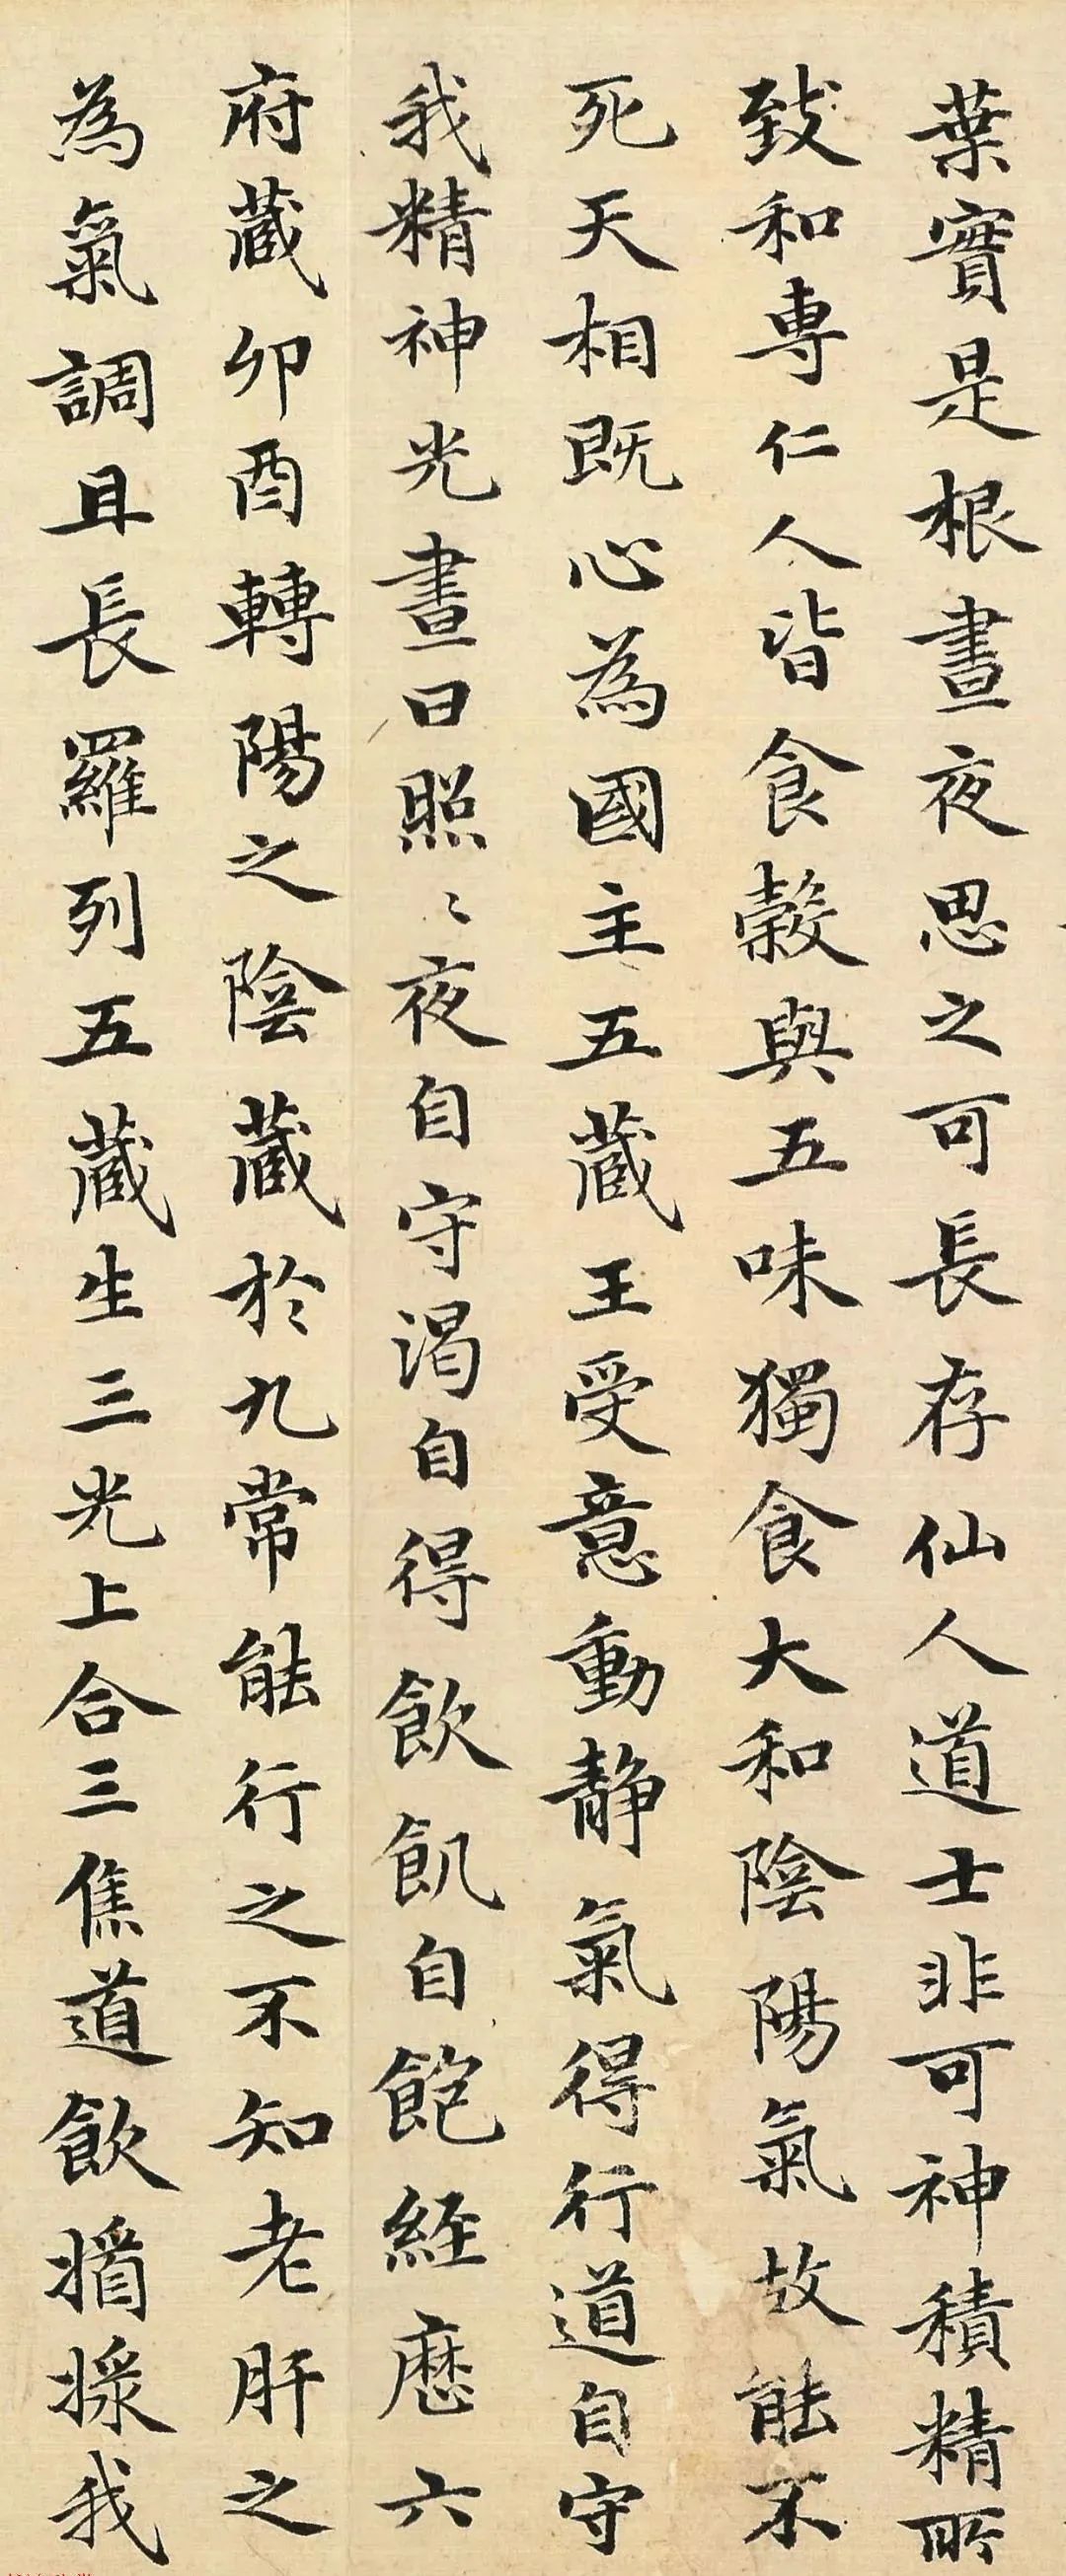 葉實是根晝夜思之可長存仙人道士非可神積精所
致和專仁人皆食穀與五味獨食大和陰陽氣故能不
死天相既心為國主五藏王受意動静氣得行道自守
我精神光晝日照〻夜自守渴自得飲飢自飽經歷六
府藏卯酉轉陽之陰藏於九常能行之不知老肝之
為氣調且長羅列五藏生三光上合三焦道飲我